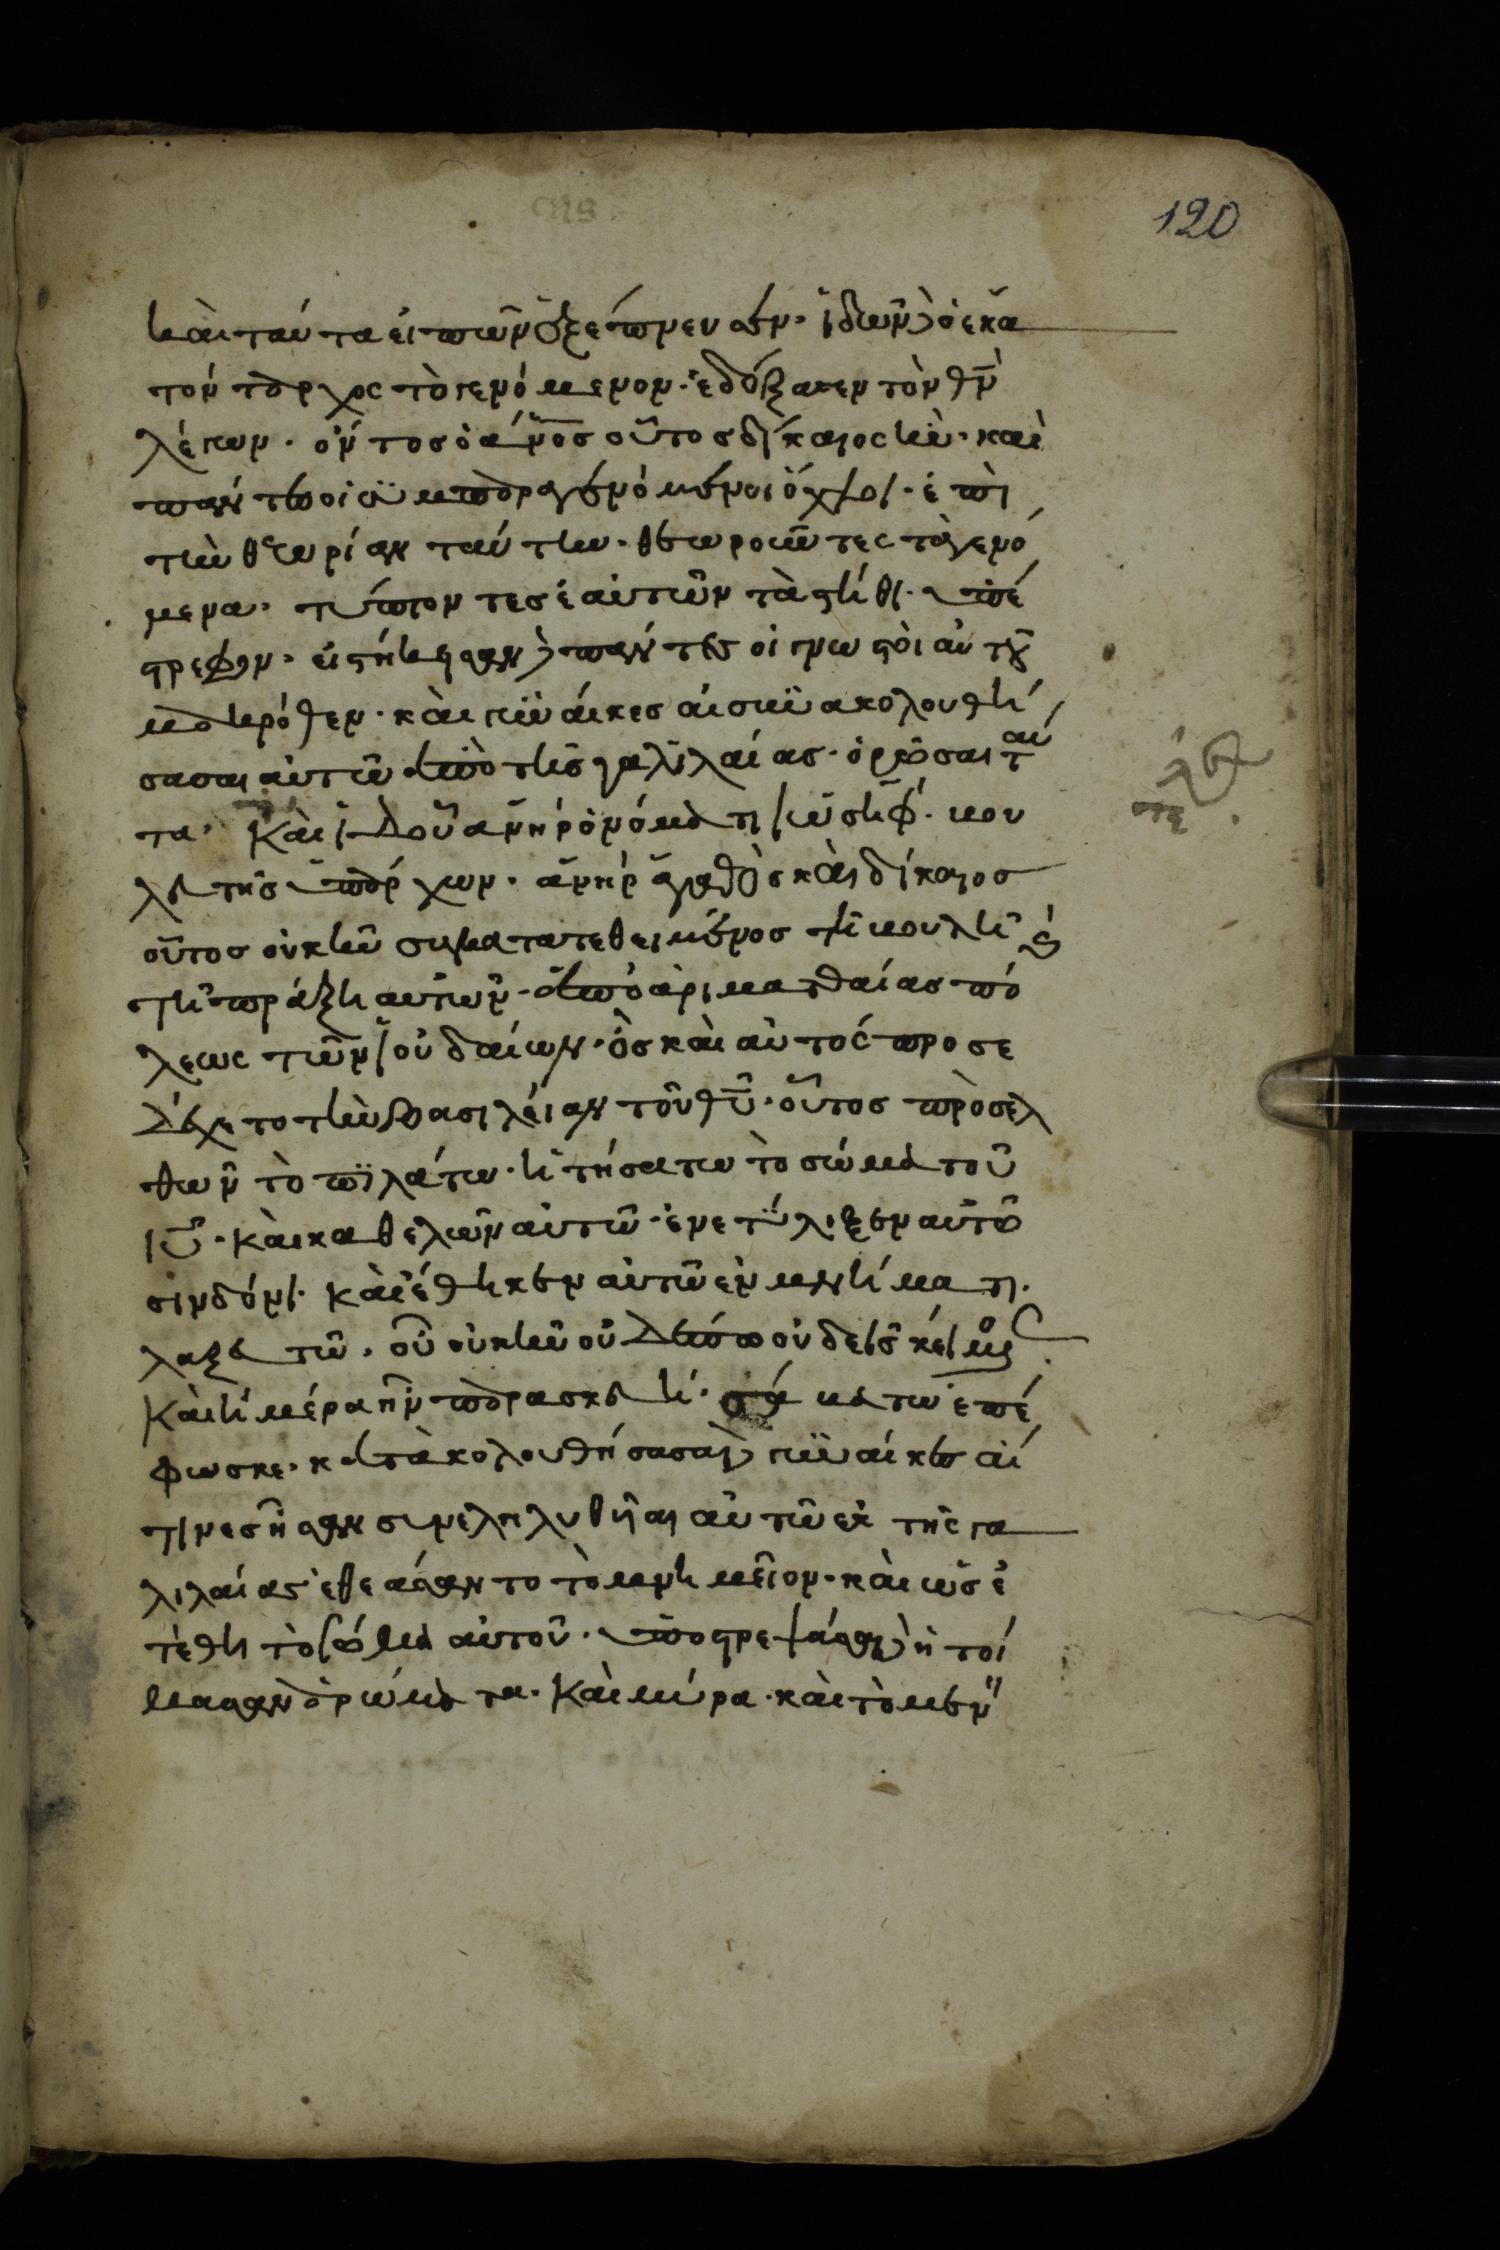 120
καὶ ταύτα εἰπὼν ἐξέπνευσεν· ἰδὼν δὲ ὁ εκα
τόνταρχος τὸ γενόμενον· ἐδόξασεν τὸν θ̅ν̅
λέγων· όντος ὁ ἄνος οὗτος δίκαιος ἦν· καὶ
πάντες οἱ συμπαραγενόμενοι όχλοι· ἐπὶ
τὴν θεωρίαν ταύτην· θεωροῦντες τὰ γενό
μενα· τύπτοντες ἑαυτῶν τὰ στήθι· ὑπέ
στρεφον· εἱστήκησαν δὲ πάντες οἱ γνωστοὶ αὐτοῦ
μακρόθεν· καὶ γυναίκες αἱ συνακολουθή
σασαι αὐτῶ ἀπὸ τῆς γαλιλαίας· ὁρῶσαι ταύ
τα· Καὶ ἰδοῦ ἀνὴρ ὀνόματι ἰωσὴφ· βου
λευτὴς ὑπάρχων· ἀνὴρ ἀγαθὸς καὶ δίκαιος
οὗτος οὐκ ἦν συγκατατεθειμένος τῆ βουλῆ καὶ
τῆ πράξη αυτῶν· ἀπὸ ἀριμαθαίας πό
λεως τῶν ἰουδαίων· ὃς καὶ αὐτὸς προσε
δέχετο τὴν βασιλείαν τοῦ θ̅υ̅· οὗτος πρὸσελ
θων τὸ πιλάτω· ἠτήσατω τὸ σώμα τοῦ
ι̅υ̅· καὶ καθελὼν αὐτῶ· ἐνετύλιξεν αὐτῶ
σινδόνι· καὶ ἔθηκεν αὐτῶ ἐν μνήματι
λαξευτῶ· οὗ οὐκ ἦν οὐδέπω οὐδεὶς κείμενος
Καὶ ἡμέρα ἦν παρασκευή· σάββατω ἐπέ
φωσκε· κατακολουθήσασαι δὲ γυναίκες αἵ
τινες ἦσαν συνεληλυθῆαι αὐτῶ ἐκ τῆς γα
λιλαίας ἐθεάσαντο τὸ μνημεῖον· καὶ ὡς ἐ
τέθη τὸ σῶμα αὐτοῦ· ὑποστρεψάσαι δὲ ἡτοί
μασαν ἀρώματα· Καὶ μύρα· καὶ τὸ μὲν